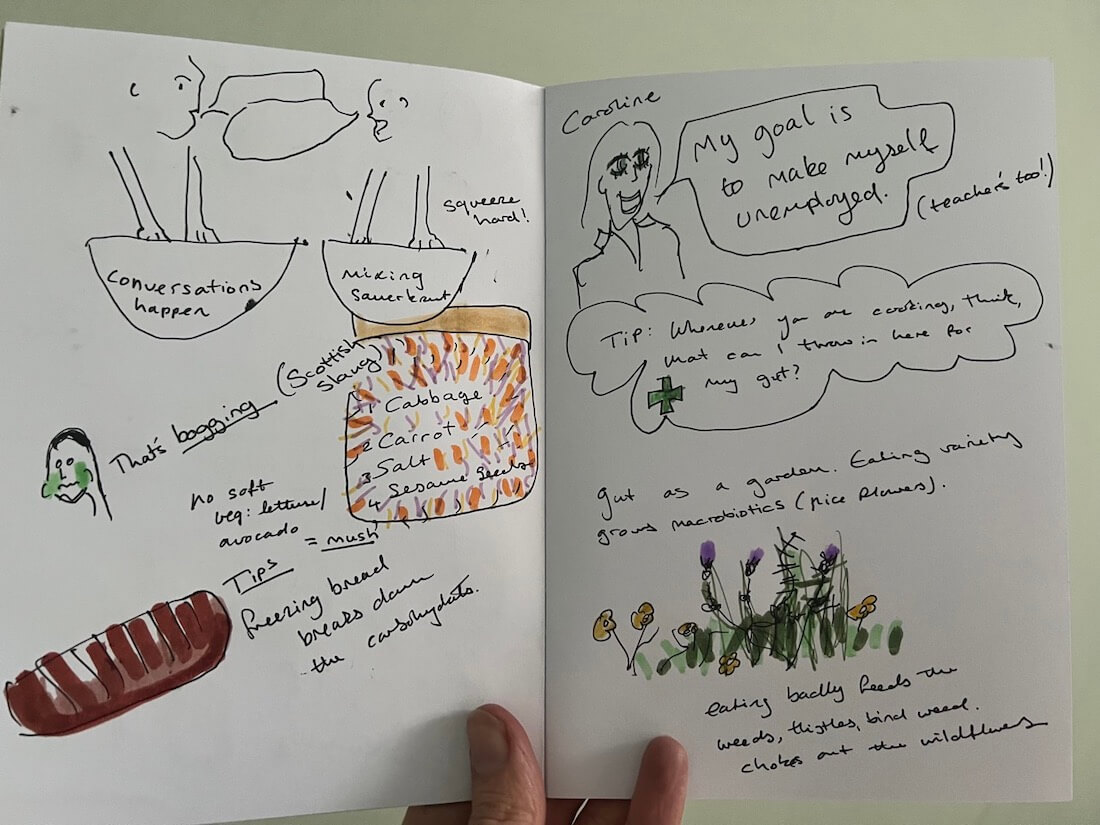 conversations
happen
squeeze
hard!
mixing
sauerkraut
That's bogging (Scottish
slang)
1 Cabbage
2 Carrot
3 Salt
4 Sesame Seeds
no soft
veg: lettuce/
avocado
= mush
Tips
freezing bread
breaks down
the carbohydrates.
Caroline
My goal is
to make myself
unemployed.
(teacher's too!)
Tip: Whenever you are cooking, think,
what can I throw in here for
my gut?
gut as a garden. Eating variety
grows macrobiotics (nice flowers).
eating badly feeds the
weeds, thistles, bind weed.
chokes out the wildflowers